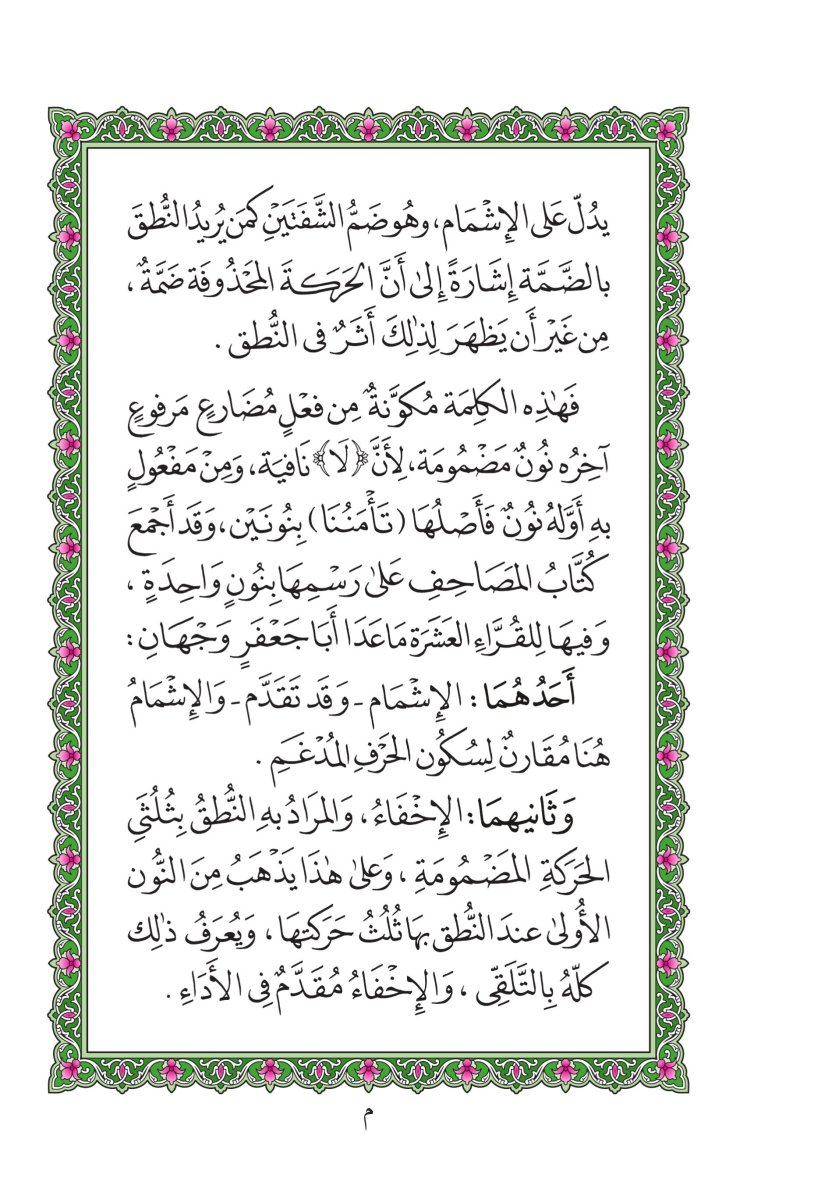 يدُلّ عَلى الإِشْمَام، وهُو ضَمُّ الشَّفَتَيْنِ كمَن يُرِيدُ النُّطقَ
بالضَّمَّة إِشَارَةً إِلىٰ أَنَّ الحَرَكةَ المَحْذُوفَة ضَمَّةٌ،
مِن غَيْرِ أَن يَظهَرَ لِذٰلِكَ أَثَرٌ فى النُّطق .
فَهٰذِه الكِلِمَة مُكوَّنةٌ مِن فعْلٍ مُضَارعٍ مَرفوعٍ
آخِرُه نُونٌ مَضْمُومَة، لِأَنَّ ﴿لَا﴾ نَافيَة، وَمِنْ مَفْعُولٍ
بهِ أَوّلهُ نُونٌ فَأَصْلُهَا (تَأْمَنُنَا) بِنُونَيْن، وَقَد أَجْمَعَ
كُتَّابُ المَصَاحِفِ عَلىٰ رَسْمِهَا بِنُونٍ وَاحِدَةٍ ،
وَفيهَا لِلقُرَّاءِ العَشَرَة مَاعَدَا أَبَا جَعْفَرٍ وَجْهَانِ:
أَحَدُهُمَا : الإِشْمَام - وَقَد تَقَدَّم - وَالإِشْمَامُ
هُنَا مُقَارِنٌ لِسُكُون الحَرْفِ المُدْغَمِ .
وَثَانيهمَا: الإِخْفَاءُ ، وَالمرَادُ بهِ النُّطقُ بِثُلُثَيِ
الحَرَكَةِ المَضْمُومَةِ ، وَعَلىٰ هٰذَا يَذْهَبُ مِنَ النُّون
الأُولىٰ عندَ النُّطق بهَا ثُلُثُ حَرَكتهَا ، وَيُعرَفُ ذٰلِك
كلّهُ بِالتَّلَقِّى ، وَالإِخْفَاءُ مُقَدَّمٌ فِى الأَدَاءِ .
م